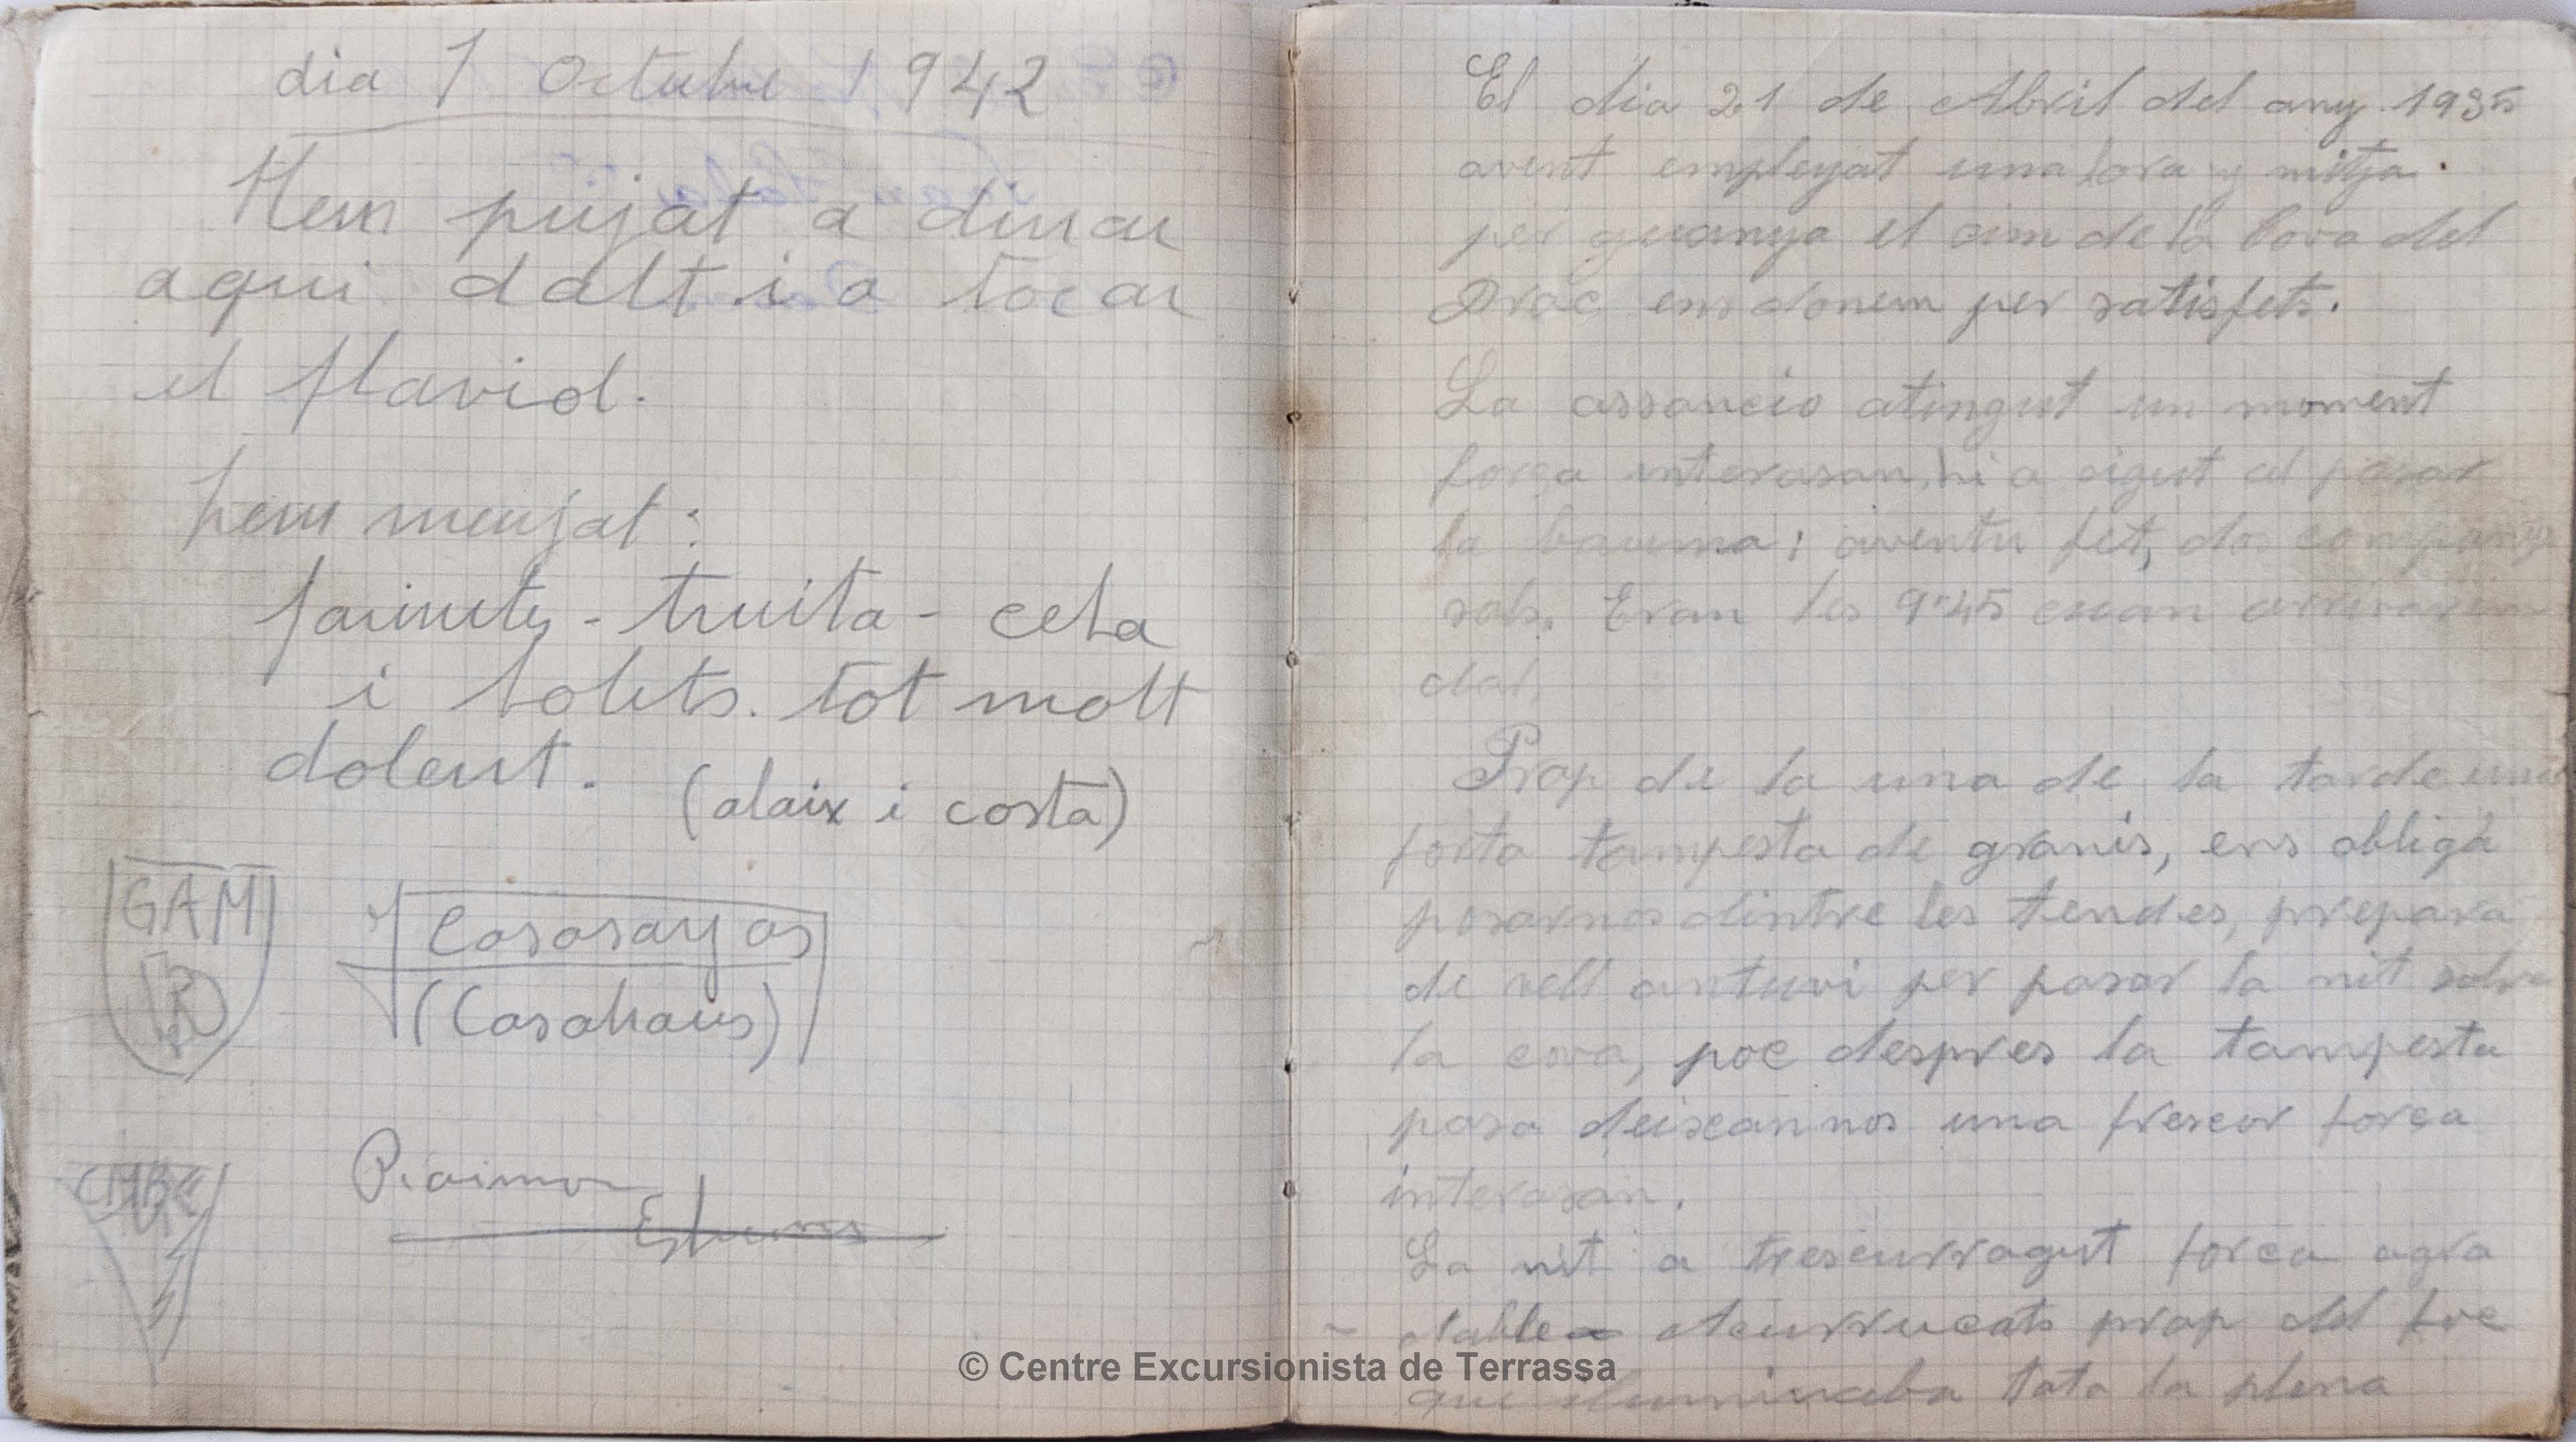 dia 1 Octubre 1942
Hem pujat a dinar
aqui dalt i a tocar
el flaviol.
hem menjat:
farinetes - truita - ceba
i bolets. tot molt
dolent.
(alaix i costa)
GAM
Casasayas
(Casahaus)
CMBC
Raimon
El dia 21 de Abril del any 1935
avent empleyat una hora y mitja
per guanya el cim de la Cova del
Drac ens donem per satisfets.
La assancio atingut un moment
força interasan, hi a sigut al pasar
la bauma; aventu fet, dos companys
sols. Eran les 9'45 cuan arrivarem
dal.
Prop de la una de la tarde una
forta tampesta de granis, ens obligà
posarnos dintre les tendes, prepara
de vell antuvi per pasar la nit sobre
la cova, poc despres la tampesta
pasa deixannos una frescor força
interasan.
La nit a trescurragut força agra
dable acurrucats prop del foc
que iluminaba tota la plena
© Centre Excursionista de Terrassa